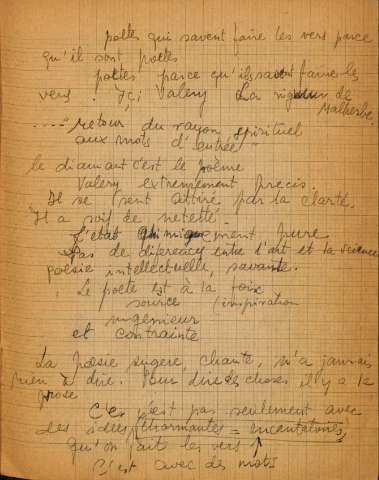 poètes qui savent faire les vers parce
qu'il sont poètes
poètes parce qu'ils savent faire les
vers. Ici Valery La rigueur de
Malherbe.
"retour du rayon spirituel
aux mots d'entrée"
le diamant c'est le poème
Valery extremement precis.
Il se sent attiré par la clarté.
Il a soif de netteté.
L'état chimiquement pure
Pas de diferency entre l'art et la science
poésie intellectuelle, savante.
Le poète est à la foix
source / inspiration
ingenieur
et contrainte
La poesie sugere, chante, n'a jamais
rien à dire. Pour dire des choses il y a la
prose
C'es n'est pas seulement avec
des idées (charmantes = incantatoires)
qu'on fait les vers
C'est avec des mots